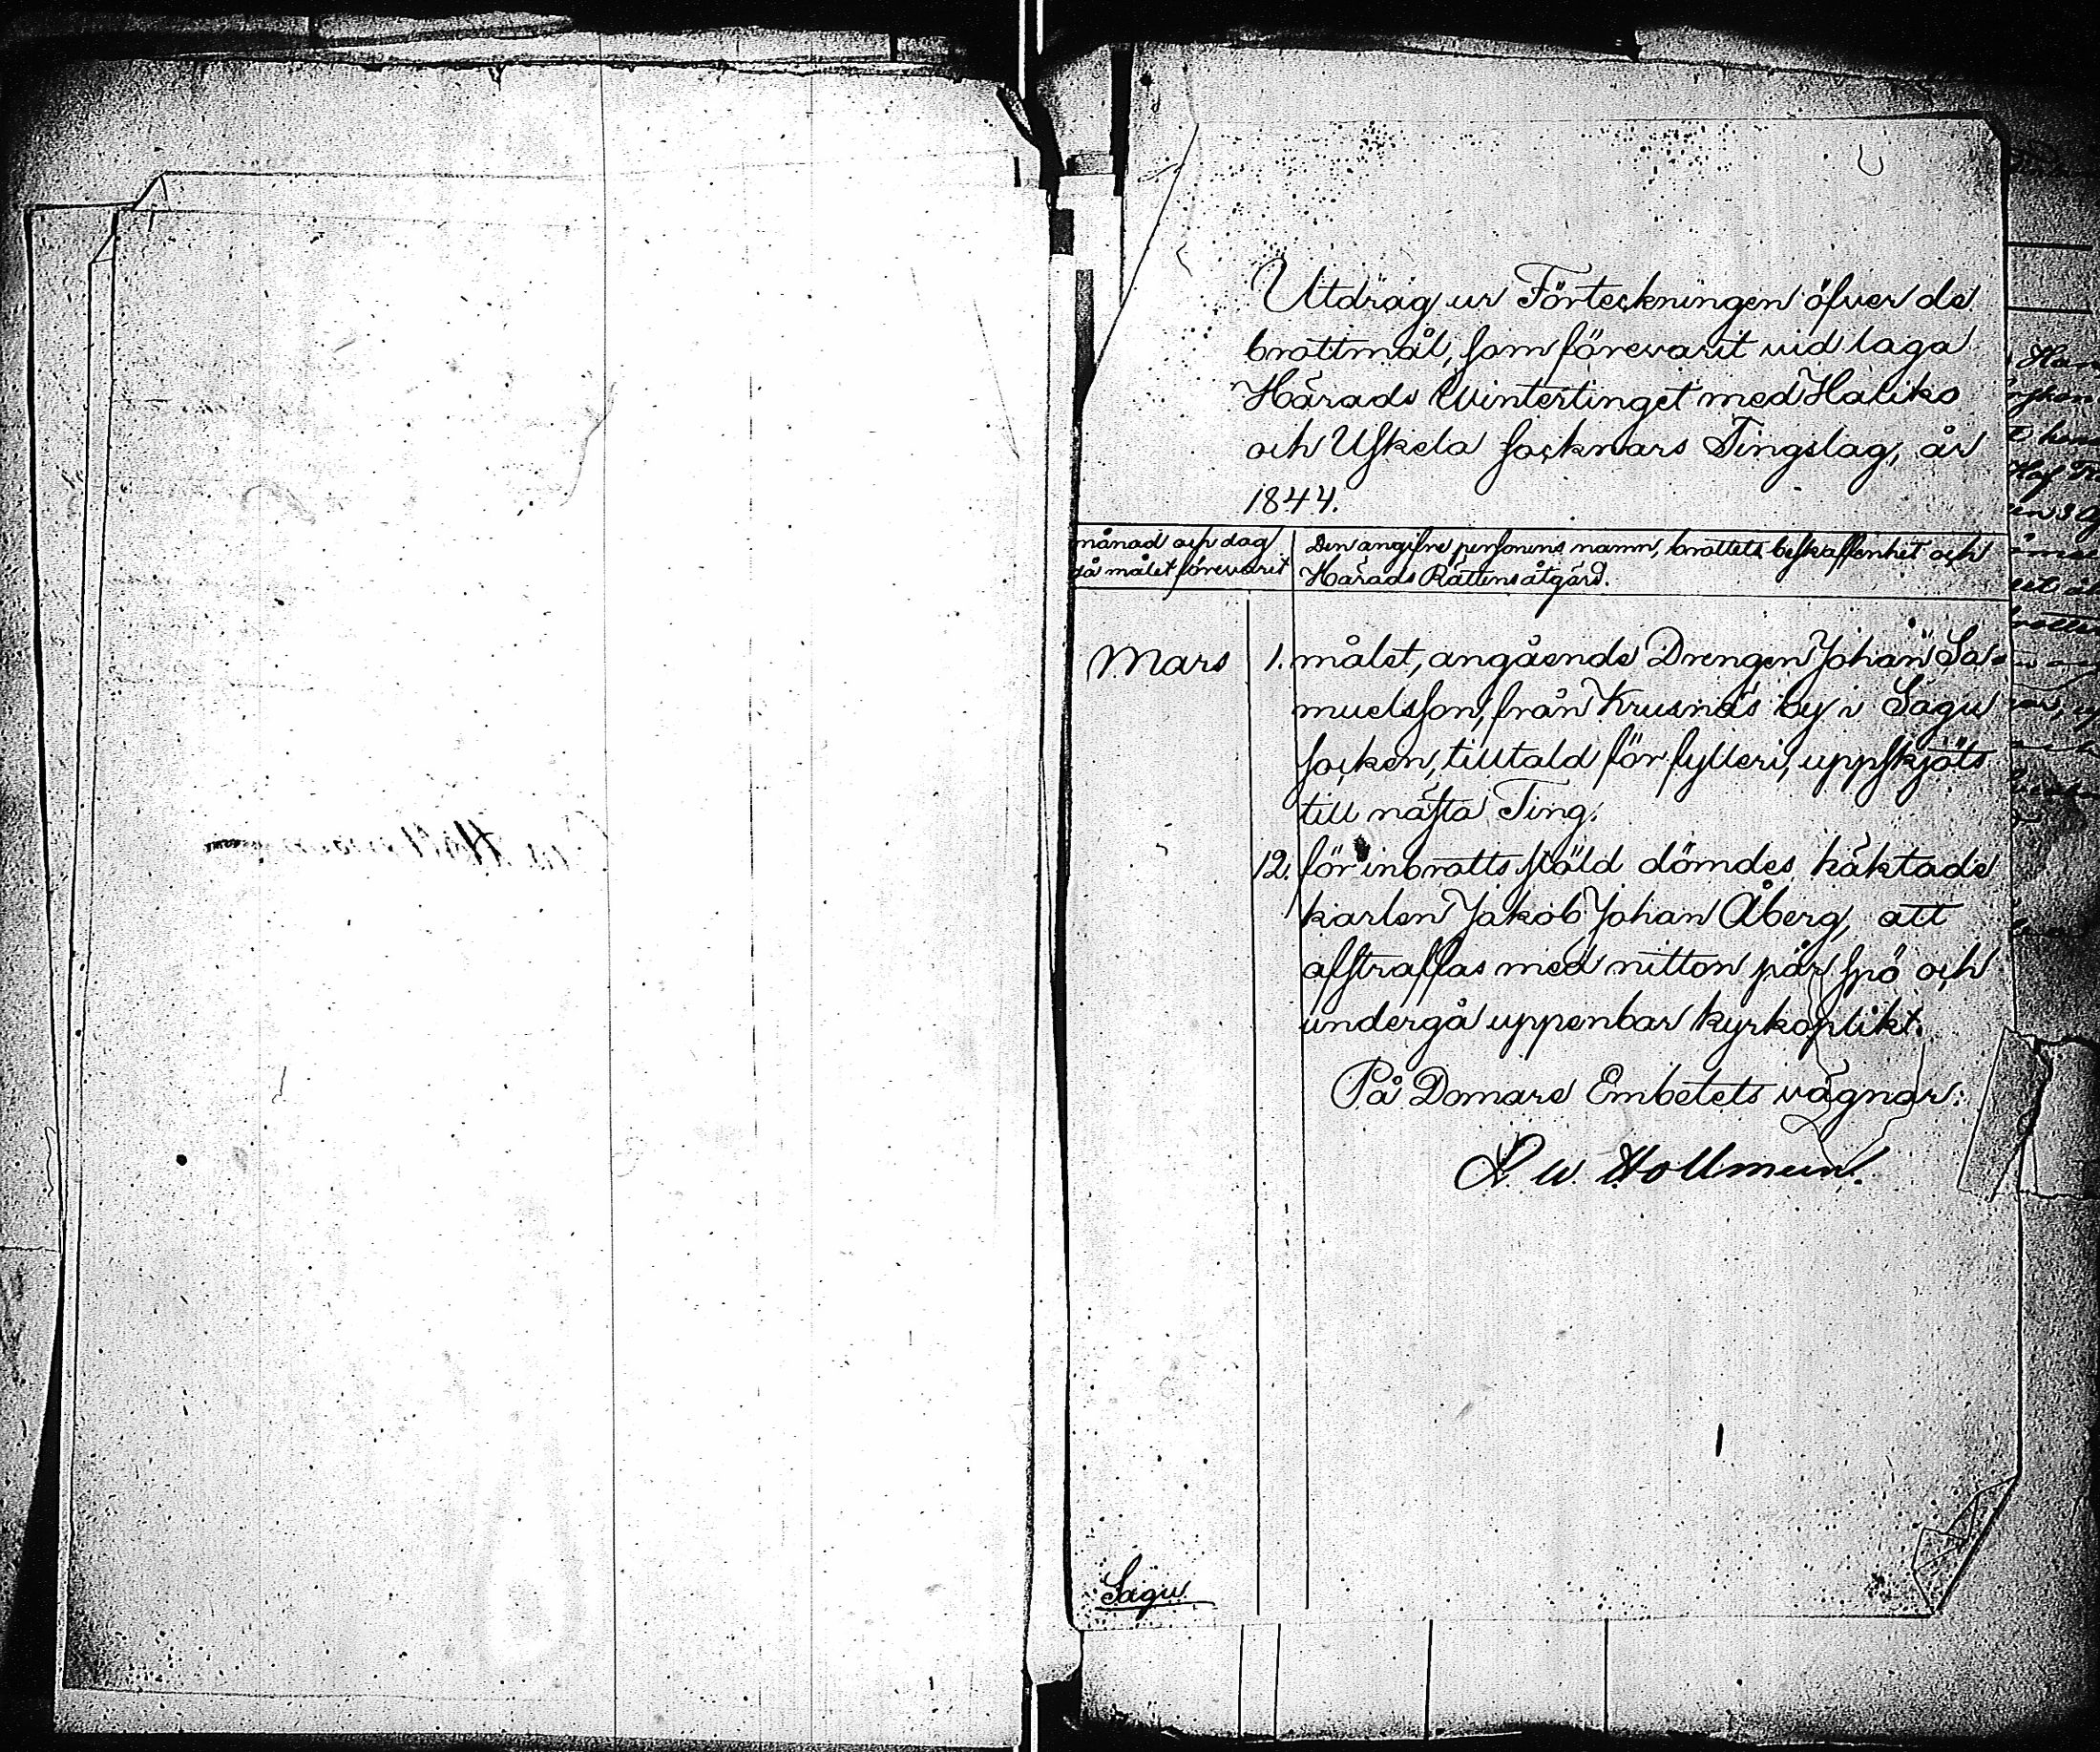 Utdrag ur Förteckningen öfver de
brottmål, som förevarit vid laga
Härads Wintertinget med Haliko
och Uskela socknars Tingslag, år
1844.
månad och dag
då målet förevarit
Den angifne personens namn, brottets beskaffenhet och
Härads Rättens åtgärd.
Mars 1. målet, angående Drengen Johan Sa-
muelsson, från Krusnäs by i Sagu
socken, tilltald för fylleri, uppskjöts
till nästa Ting.
12. för inbrotts stöld dömdes häktade
karlen Jakob Johan Åberg, att
afstraffas med nitton par spö och
undergå uppenbar kyrkoplikt.
På Domare Embetets vägnar:
W. Hollmeen.
Sagu